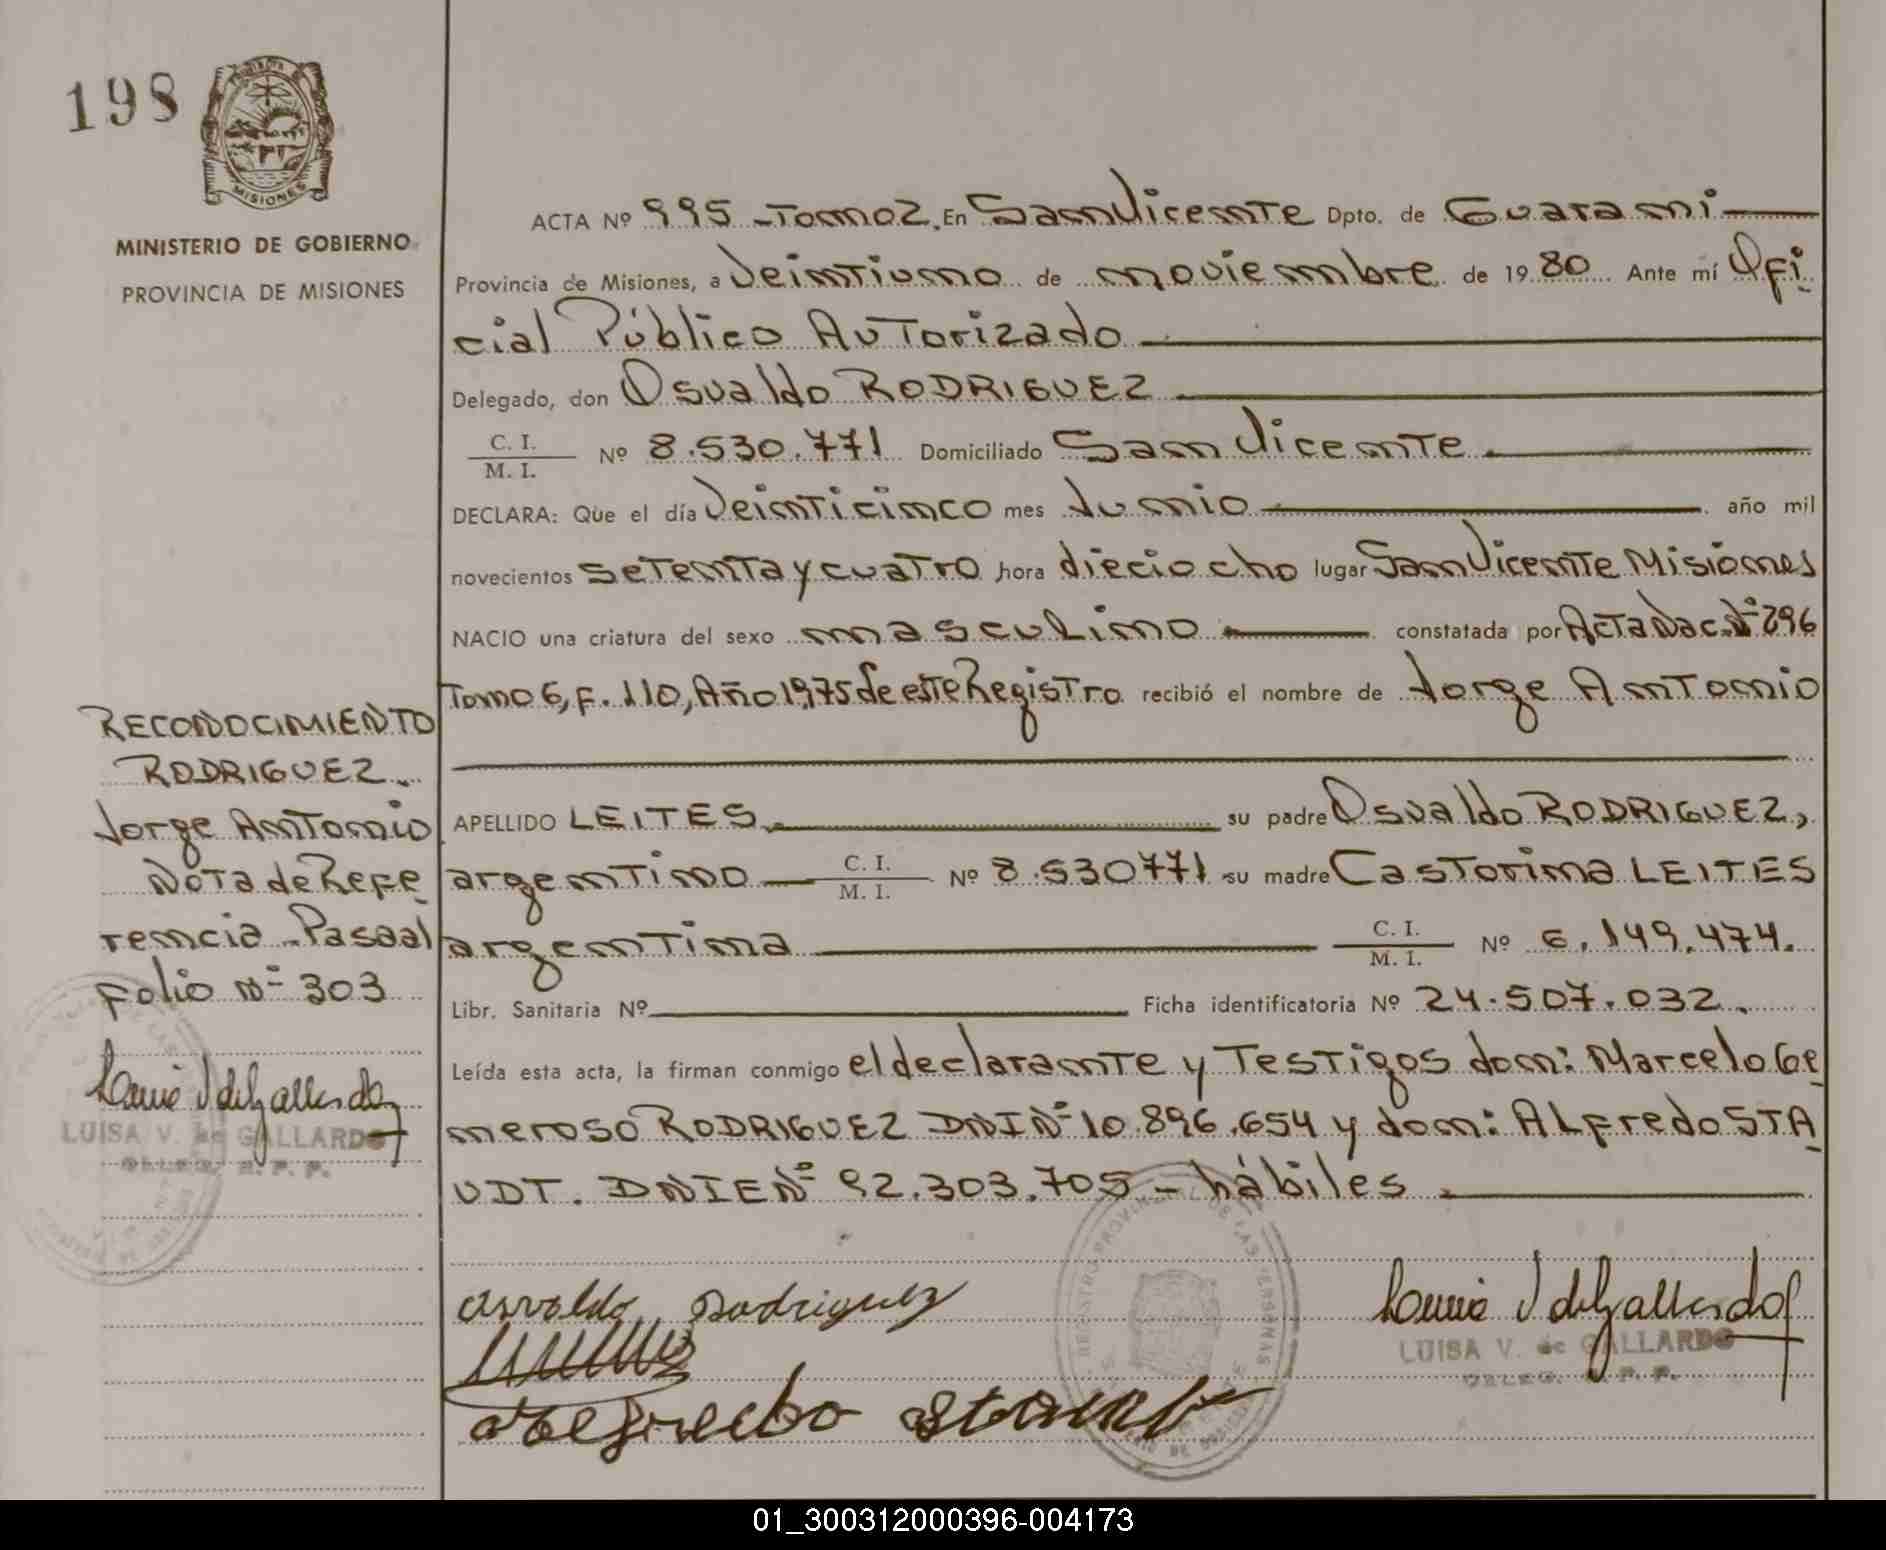 198
MISIONES
MINISTERIO DE GOBIERNO
PROVINCIA DE MISIONES
ACTA Nº 995 - Tomo 2. En San Vicente Dpto. de Guarani
Provincia de Misiones, a Veintiuno de noviembre de 1980 Ante mí Ofi
cial Público Autorizado
Delegado, don Osvaldo RODRIGUEZ
C. I.
M. I. Nº 8.530.771 Domiciliado San Vicente
DECLARA: Que el día Veinticinco mes Junio año mil
novecientos setenta y cuatro hora dieciocho lugar San Vicente Misiones
NACIO una criatura del sexo masculino constatada por Acta Nac. Nº 296
Tomo 6, F. 110, Año 1975 de este Registro recibió el nombre de Jorge Antonio
APELLIDO LEITES su padre Osvaldo RODRIGUEZ,
argentino C. I. M. I. Nº 8.530771 su madre Castorina LEITES
argentina C. I. M. I. Nº 6.149.474.
Libr. Sanitaria Nº Ficha identificatoria Nº 24.507.032.
Leída esta acta, la firman conmigo el declarante y Testigos don: Marcelo Ge
neroso RODRIGUEZ DNI Nº 10.896.654 y don: ALfredo STA
UDT. DNIE Nº 92.303.705 - hábiles.
RECONOCIMIENTO
RODRIGUEZ.
Jorge Antonio
Nota de Refe
rencia - Pasa al
folio Nº 303
LUISA V. de GALLARDO
Osvaldo Rodriguez
Alfredo Staudt
LUISA V. de GALLARDO
01_300312000396-004173